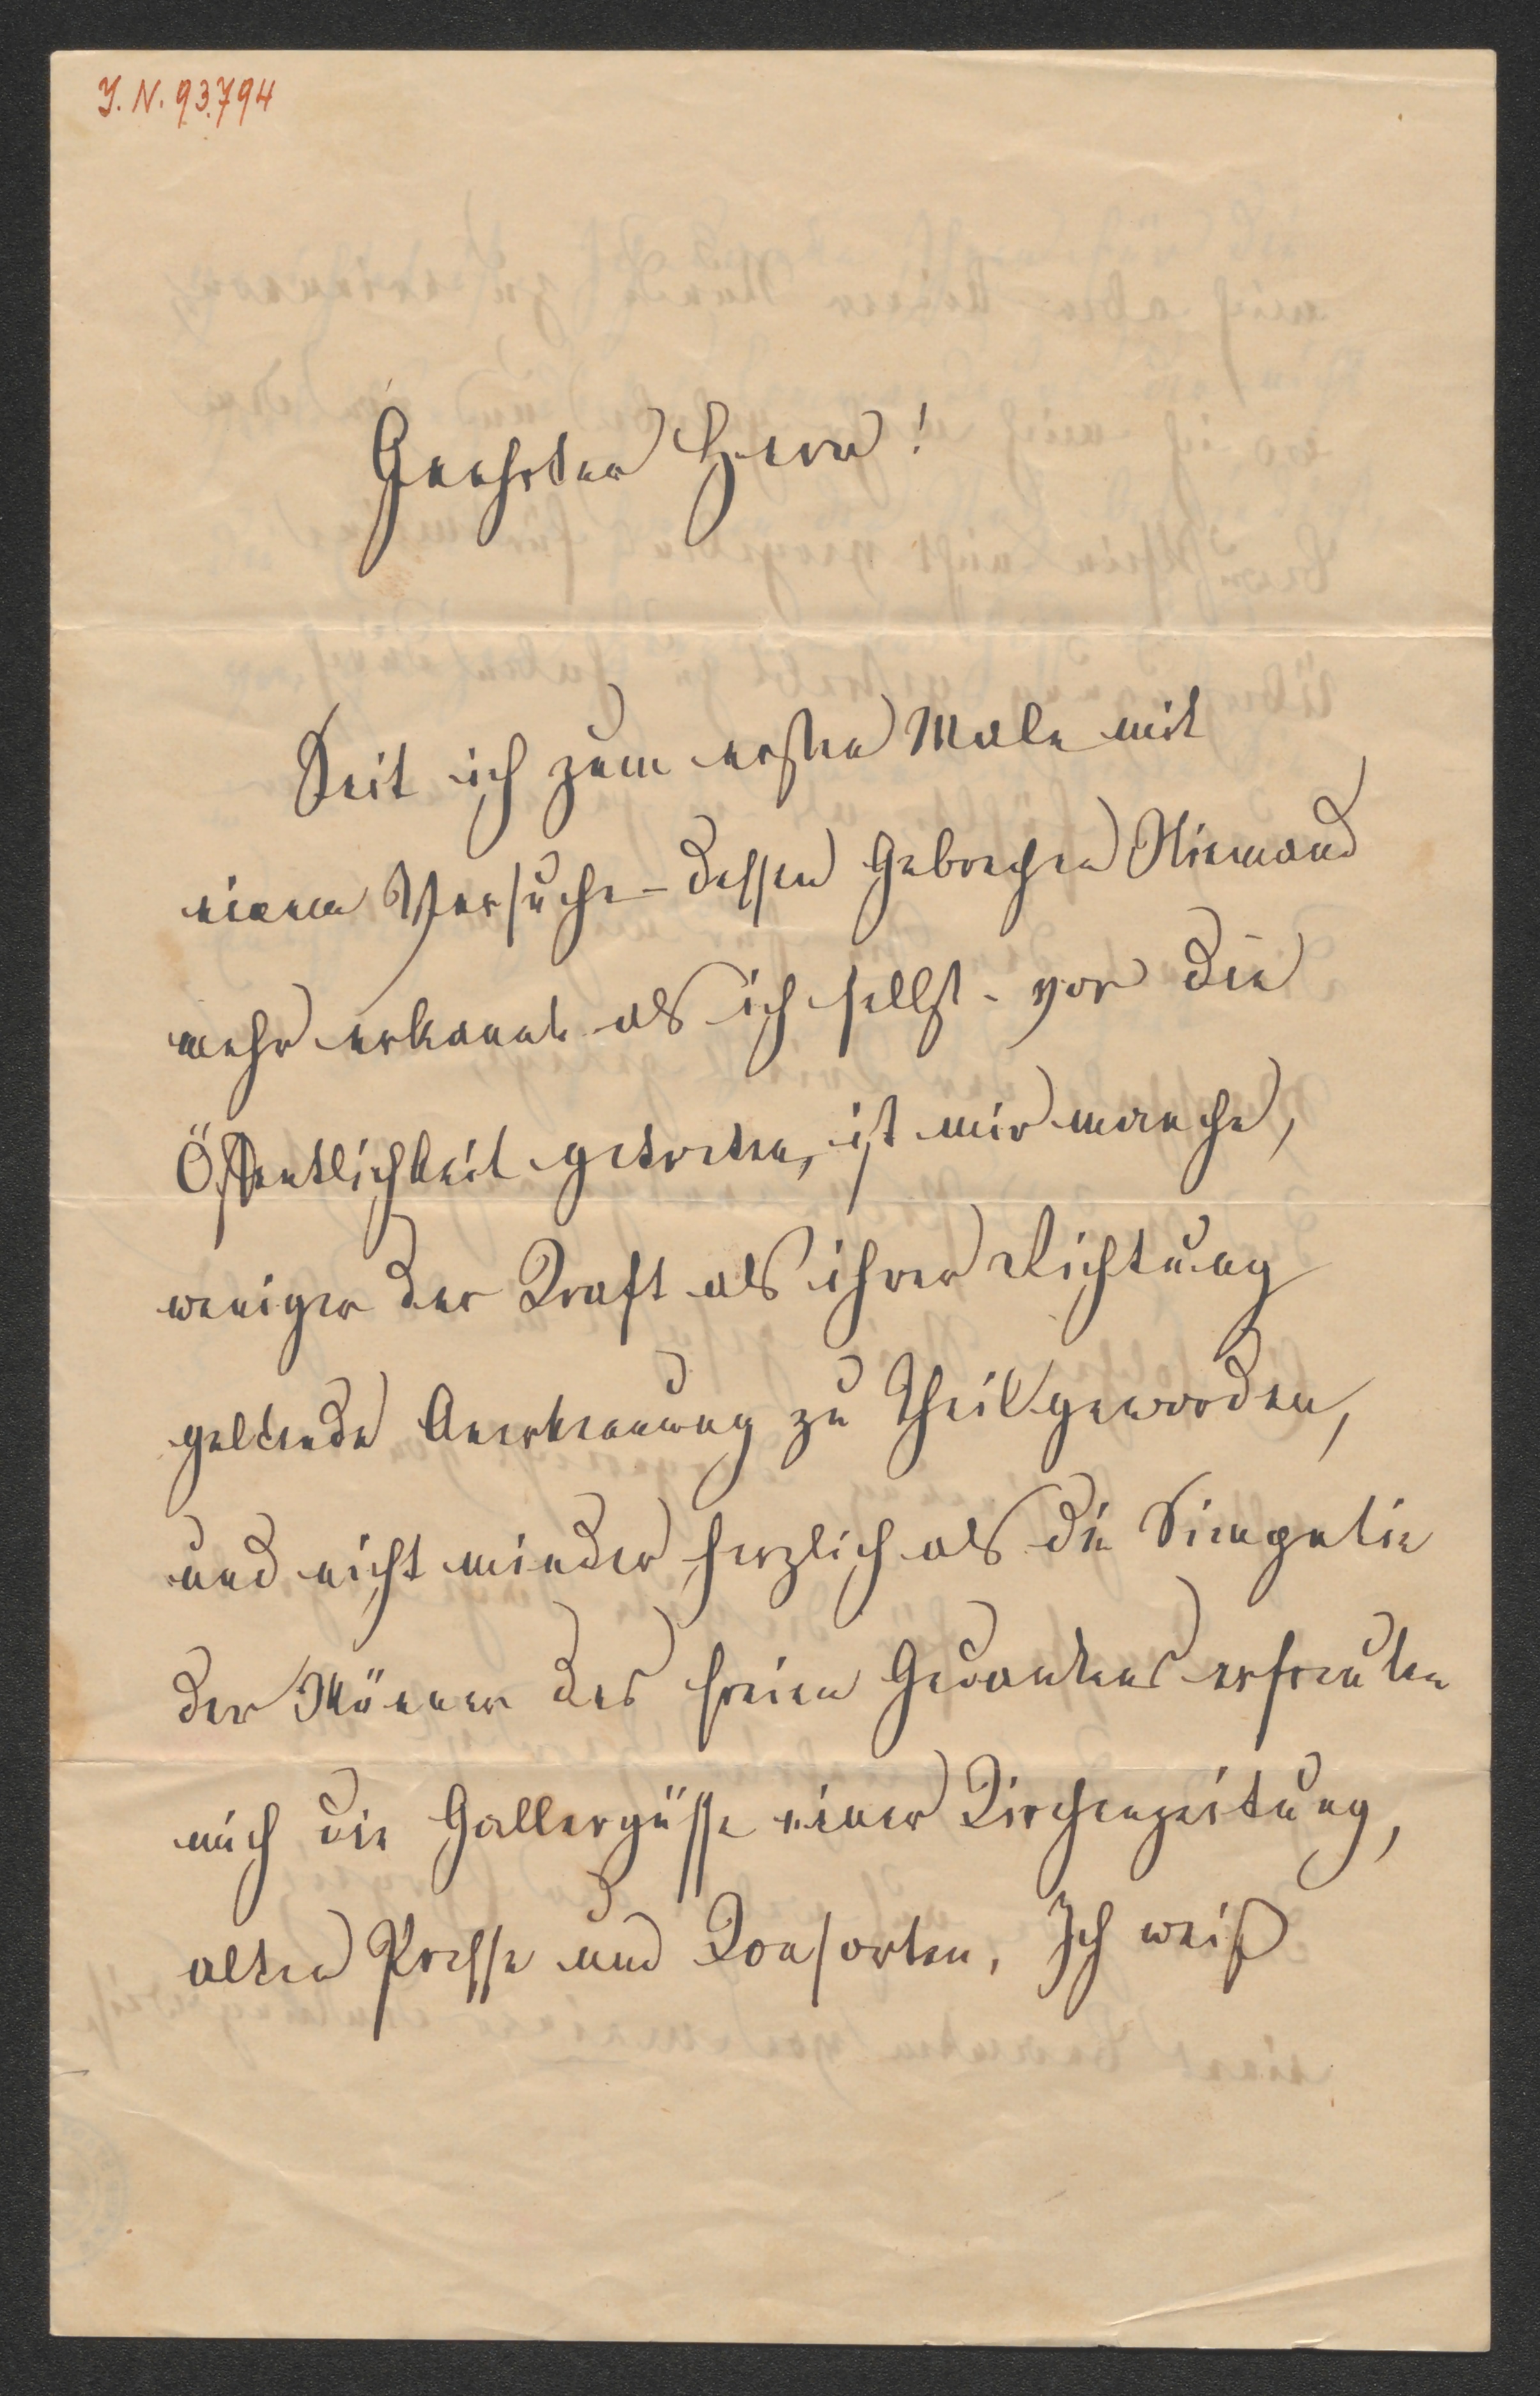 J. N. 93.794
Geehrter Herr!
Seit ich zum ersten Male mit
einem Versuche – dessen Gebrechen Niemand
mehr erkannte als ich selbst – vor die
Öffentlichkeit getreten, ist mir manche,
weniger der Kraft als ihrer Richtung
geltende Anerkennung zu Theil geworden,
und nicht minder herzlich als die Simpatie
der Männer des freien Gedankens erfreuten
mich die Gallergüsse einer Kirchenzeitung,
alten Presse und Konsorten. Ich weiß